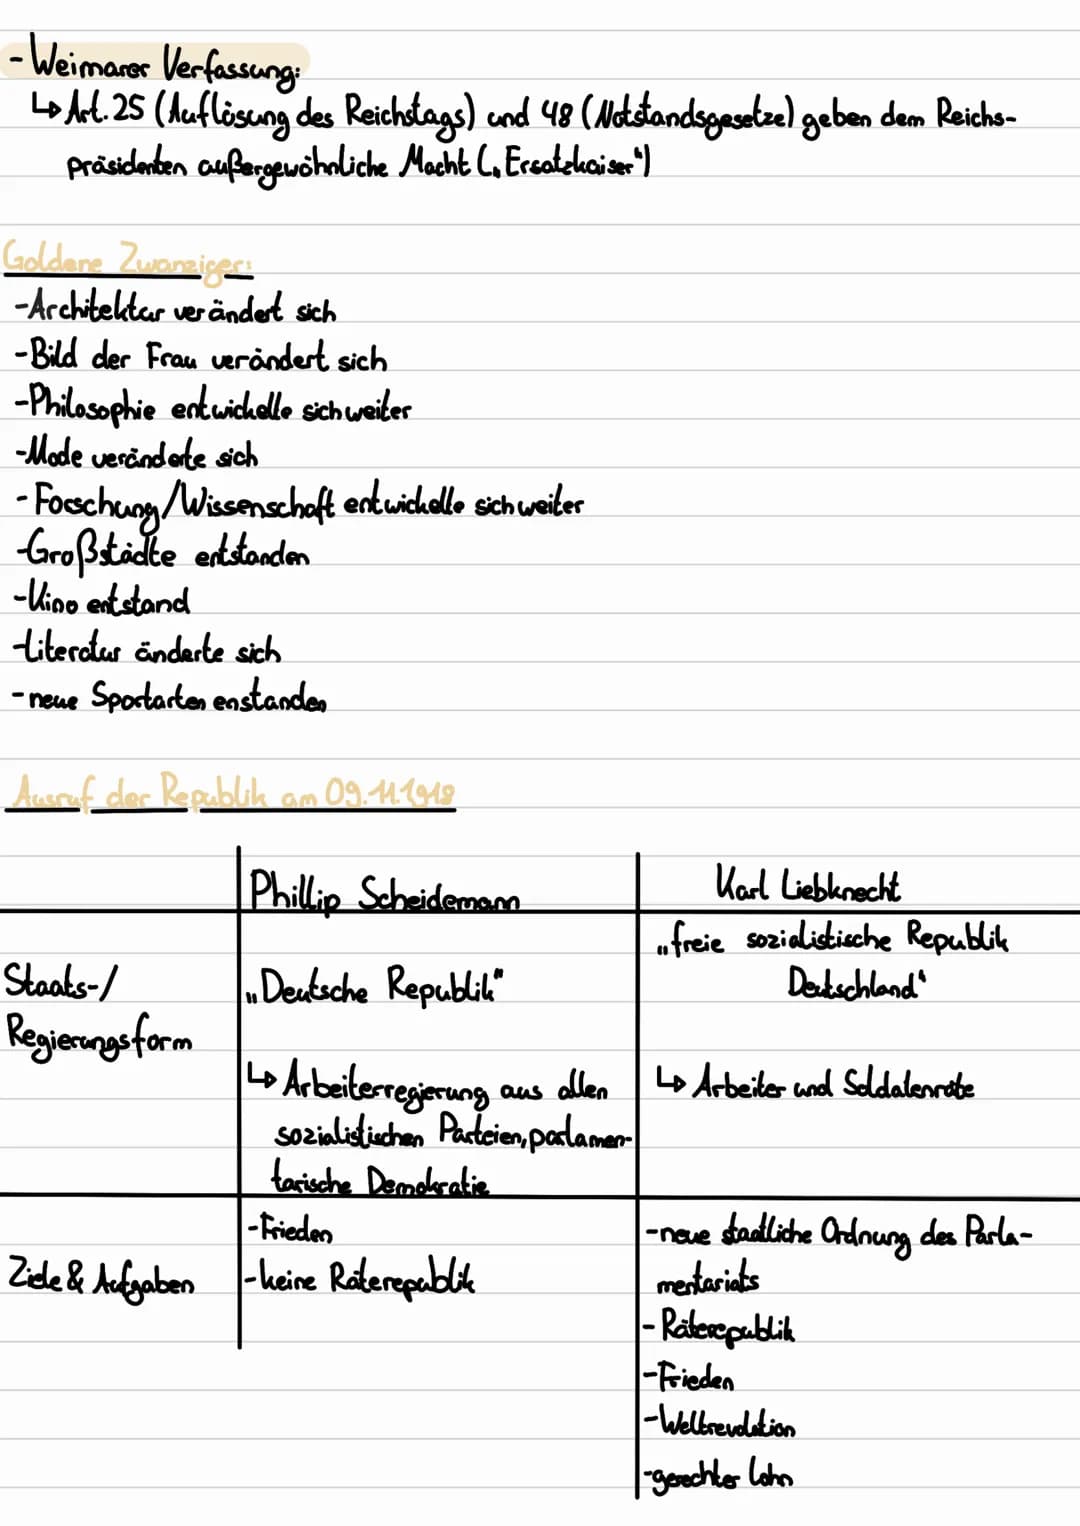 - Weimarer Verfassung:
↳ Art. 25 (Auflösung des Reichstags) und 48 (Notstandsgesetze) geben dem Reichs-
präsidenten außergewöhnliche Macht („Ersatzkaiser")
Goldene Zwanziger:
-Architektur verändert sich
-Bild der Frau verändert sich
-Philosophie entwickelte sich weiter
-Mode veränderte sich
-Forschung/Wissenschaft entwickelte sich weiter
-Großstädte entstanden
-Kino entstand
-Literatur änderte sich
-neue Sportarten enstanden
Ausruf der Republik am 09.11.1918
Phillip Scheidemann
Karl Liebknecht
Staats-/
Regierungsform
„Deutsche Republik"
↳ Arbeiterregierung aus allen
sozialistischen Parteien, parlamen-
tarische Demokratie
„freie sozialistische Republik
Deutschland"
↳ Arbeiter und Soldatenräte
Ziele & Aufgaben
-Frieden
-keine Räterepublik
-neue staatliche Ordnung des Parla-
mentariats
- Räterepublik
-Frieden
-Weltrevolution
-gerechter Lohn